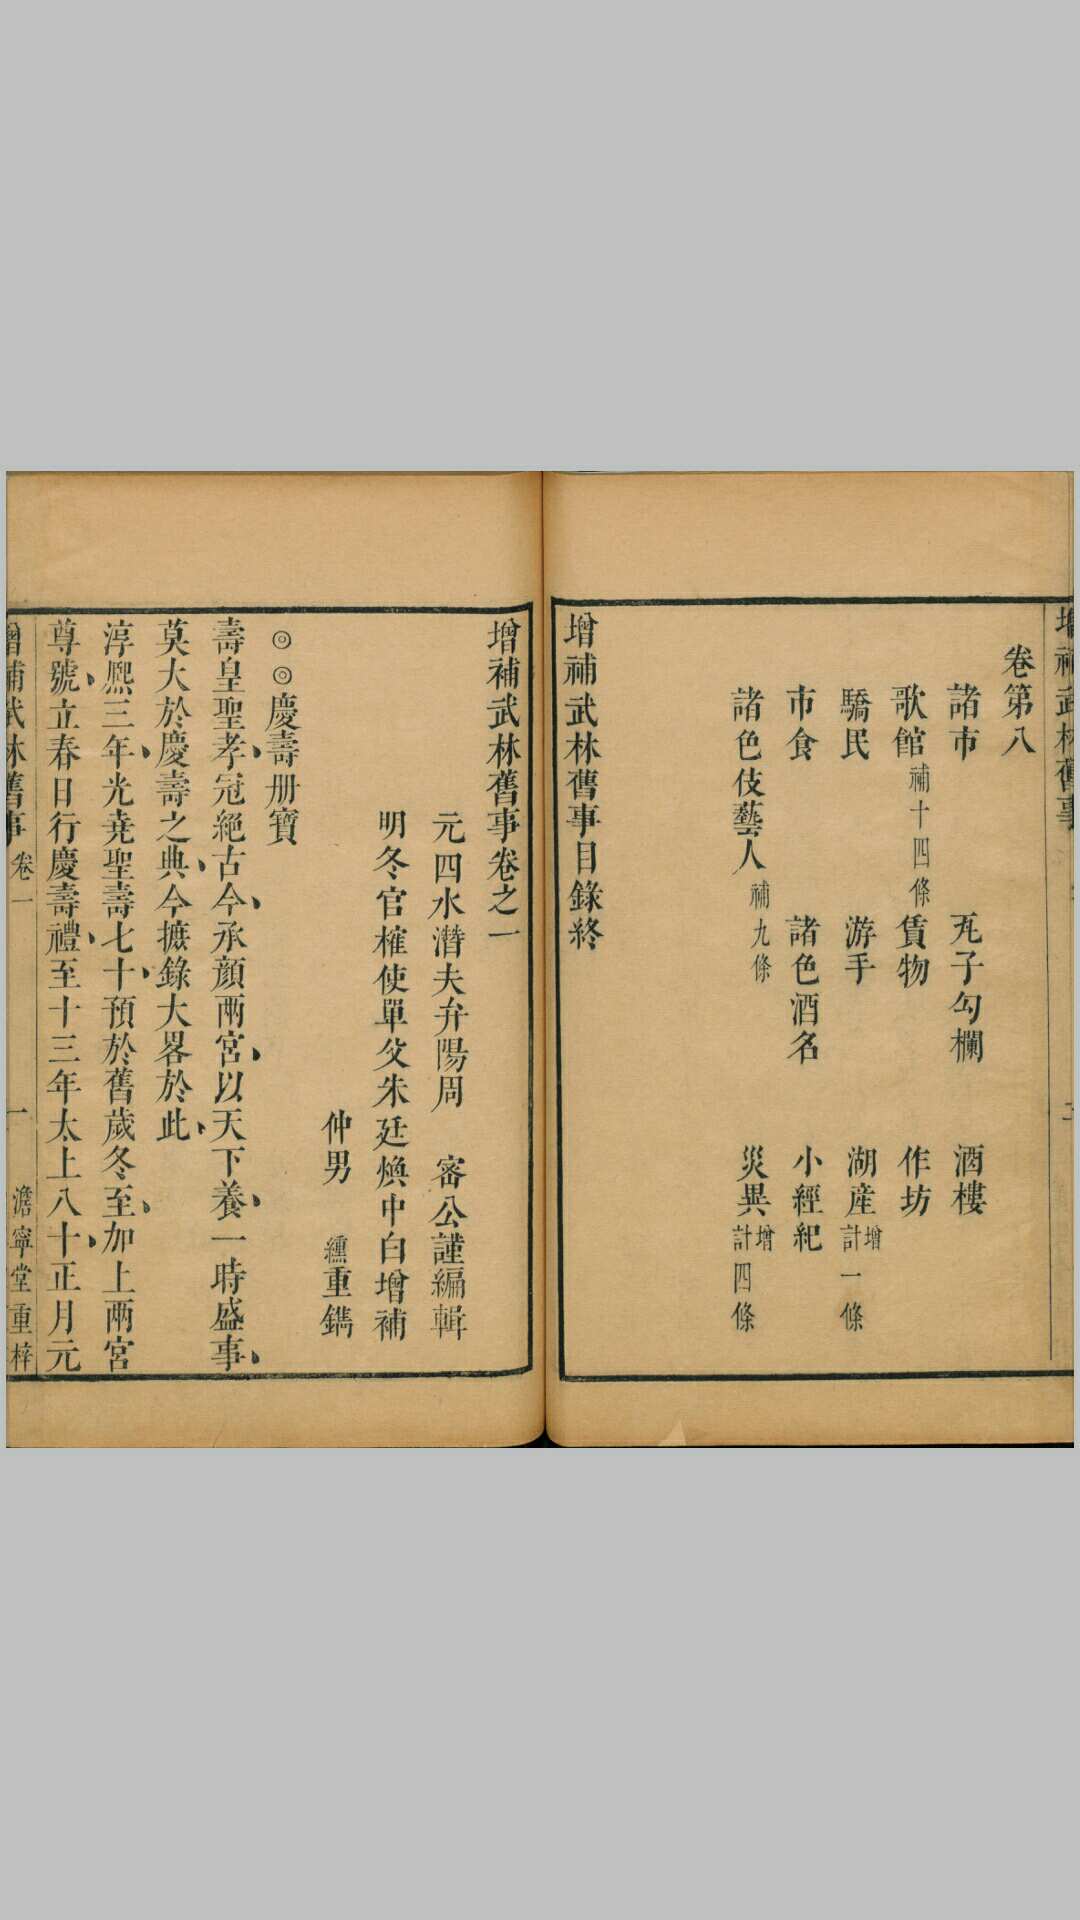 卷第八
諸市　瓦子勾欄　酒樓
歌館補十四條　賃物　作坊
驕民　游手　湖産增計一條
市食　諸色酒名　小經紀
諸色伎藝人補九條　災異增計四條
增補武林舊事目錄終
增補武林舊事卷之一
元四水潛夫弁陽周　密公謹編輯
明冬官榷使單父朱廷煥中白增補
仲男　纁重鐫
◎◎慶壽册寶
壽皇聖孝冠絕古今承顔兩宮以天下養一時盛事
莫大於慶壽之典今摭錄大畧於此
淳熙三年光堯聖壽七十預於舊歲冬至加上兩宮
尊號立春日行慶壽禮至十三年太上八十正月元
增補武林舊事　卷一　一　澹寧堂重梓